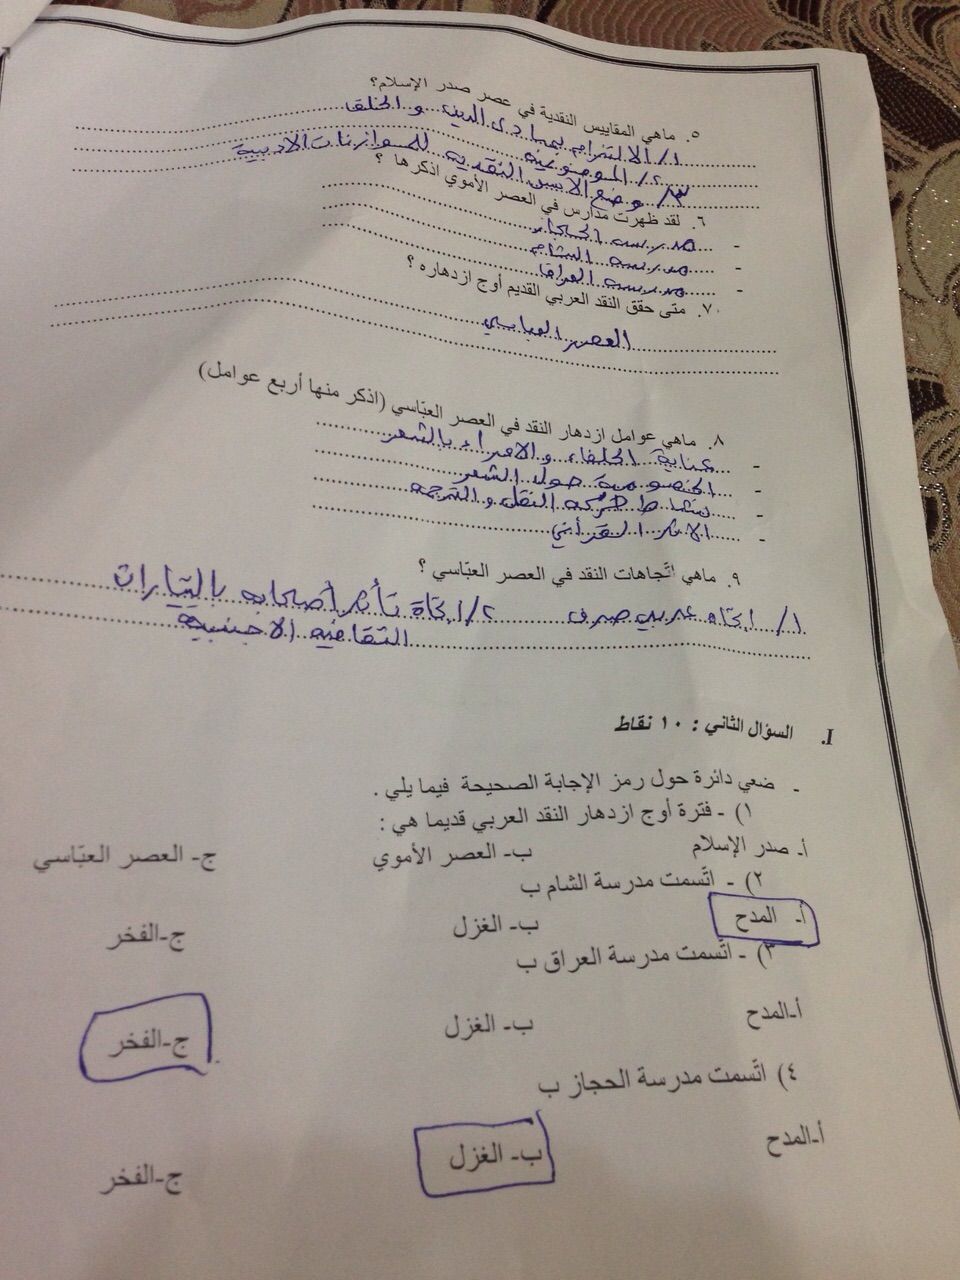 ٥. ماهي المقاييس النقدية في عصر صدر الإسلام؟
١/ الالتزام بمبادئ الدين و الخلق
٢/ الموضوعية
٣/ وضع الاسس النقديه للموازنات الادبية
٦. لقد ظهرت مدارس في العصر الأموي اذكرها ؟
- مدرسة الحجاز
- مدرسة الشام
- مدرسة العراق
٧. متى حقق النقد العربي القديم أوج ازدهاره ؟
العصر العباسي
٨. ماهي عوامل ازدهار النقد في العصر العبّاسي (اذكر منها أربع عوامل)
- عناية الخلفاء والامراء بالشعر
- الخصومة حول الشعر
- نشاط حركه النقل والترجمه
- الاثر القرأني
٩. ماهي اتّجاهات النقد في العصر العبّاسي ؟
١/ إتجاه عربي صرف ٢/ إتجاة تأثر أصحابه بالتيارات
الثقافيه الاجنبية
I. السؤال الثاني : ١٠ نقاط
- ضعي دائرة حول رمز الإجابة الصحيحة فيما يلي .
١) - فترة أوج ازدهار النقد العربي قديما هي :
أ- صدر الإسلام ب- العصر الأموي ج- العصر العبّاسي
٢) - اتّسمت مدرسة الشام ب
أ- المدح ب- الغزل ج-الفخر
٣) - اتّسمت مدرسة العراق ب
أ-المدح ب- الغزل ج-الفخر
٤) اتّسمت مدرسة الحجاز ب
أ-المدح ب- الغزل ج-الفخر